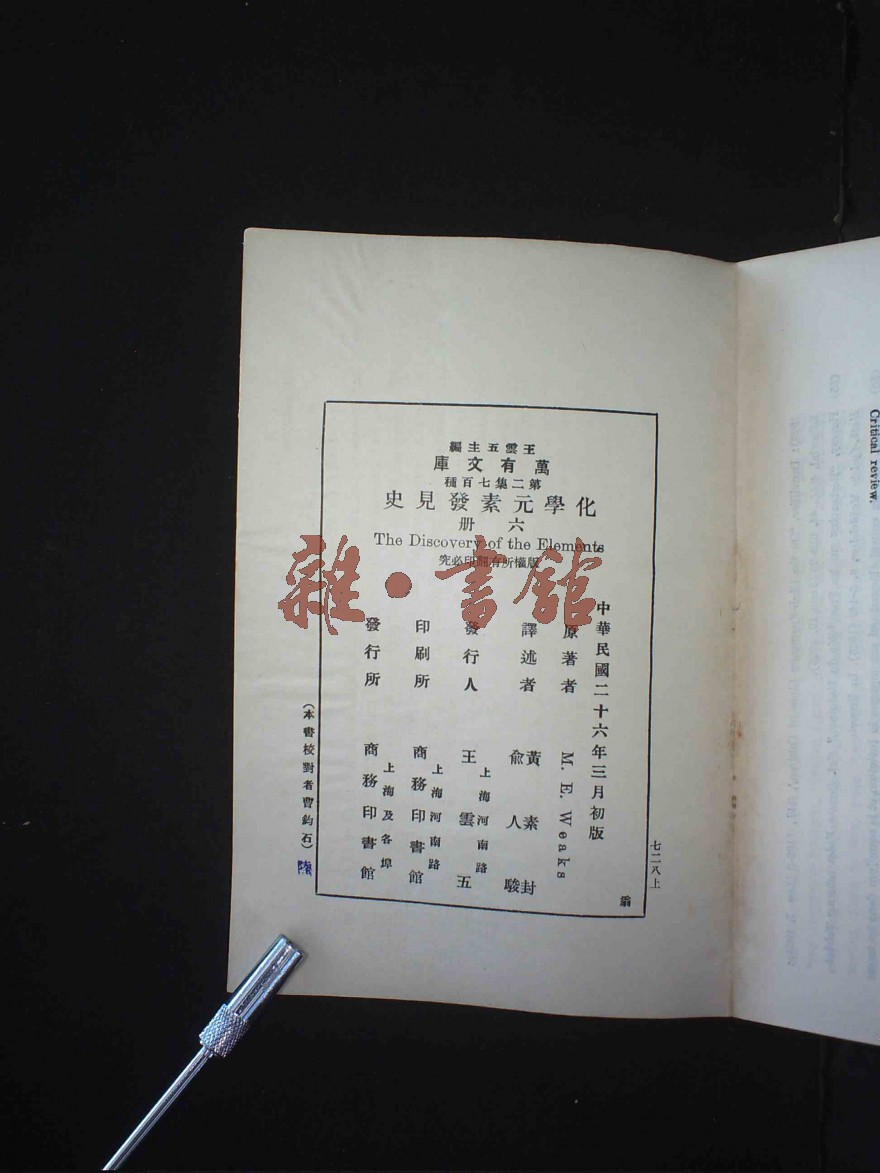 王雲五主編
萬有文庫
第二集七百種
化學元素發見史
六册
The Discovery of the Elements
版權所有翻印必究
中華民國二十六年三月初版
原著者 M. E. Weaks
譯述者 黃素封 俞人駿
發行人 王雲五
上海河南路
印刷所 商務印書館
上海河南路
發行所 商務印書館
上海及各埠
(本書校對者曹鈞石)
七二八上
雜·書館
Critical review.